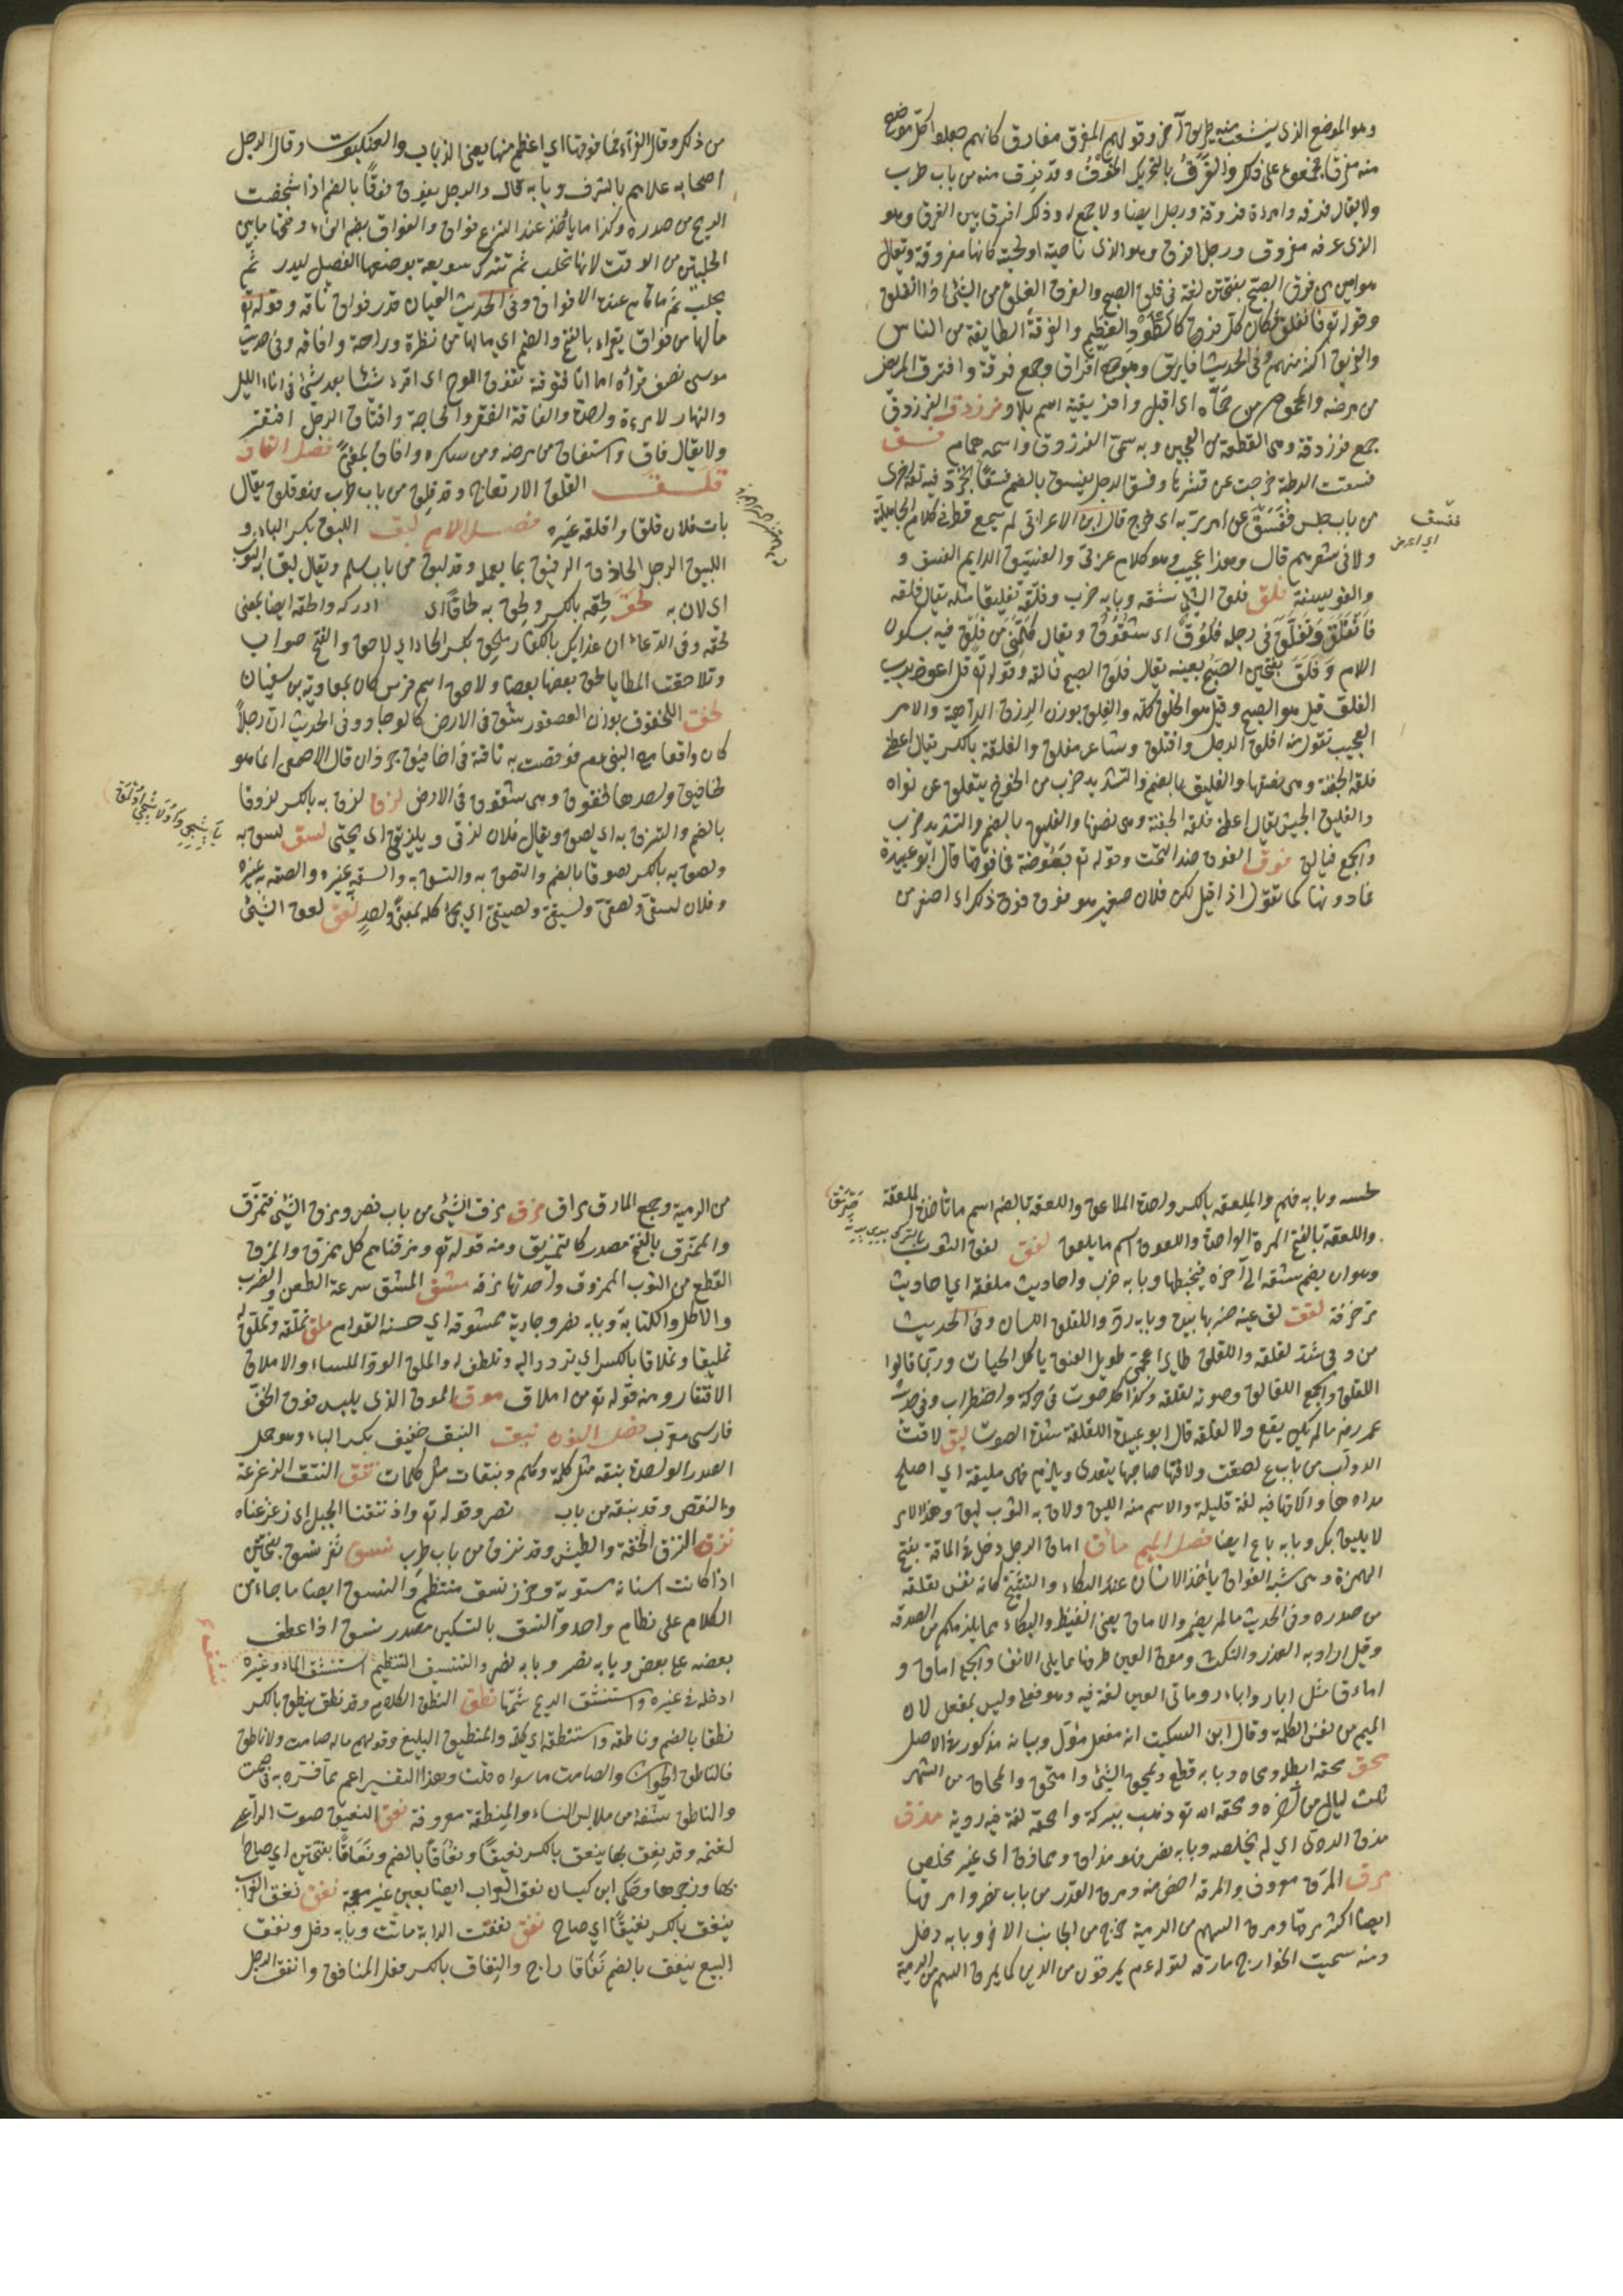 وهو الموضع الذي يتشعب منه طريق آخر وقولهم المفرق مفارق كانهم جعلوا كل موضع
منه مفرقا فجمعوه على ذلك والفرق بالتحريك الخوف وقد فرق منه من باب طرب
ولا يقال فرقه وامرءة فروقة ورجل ايضا ولا جمع له وذكر افرق بين الفرق وهو
الذي عرفه مفروق ورجل افرق وهو الذي ناصية او لحيته كانها مفروقة ويقال
هو ابين من فرق الصبح بفتحتين لغة في فلق الصبح والفرق الفلق من الشئ اذا انفلق
وقوله تع فانفلق فكان كل فرق كالطود العظيم والفرقة الطايفة من الناس
والفريق اكثر منهم وفي الحديث افاريق وهو جمع افراق وجمع فرقة وافرق المريض
من مرضه والمحموم من حماه اي اقبل وافريقية اسم بلاد فرزدق الفرزدق
جمع فرزدقة وهي القطعة من العجين وبه سمي الفرزدق واسمه همام فسق
فسقت الرطبة خرجت عن قشرتها وفسق الرجل يفسق بالضم فسقا فجر وفيه لغة اخرى
من باب جلس ففسق عن امر ربه اي خرج قال ابن الاعرابي لم يسمع قط في كلام الجاهلية
ولا في شعرهم قال وهذا عجيب وهو كلام عربي والفسيق الدايم الفسق و
والفويسقة فلق فلق الشئ شقه وبابه ضرب وفلقه تفليقا مثله يقال فلقه
فانفلق وتفلق في رجله فلوق اي شقوق ويقال كلمني من فلق فيه بسكون
اللام وفلق بفتحتين الصبح بعينه يقال فلق الصبح فالقه وقوله تع قل اعوذ برب
الفلق قيل هو الصبح وقيل هو الخلق كله والفلق بوزن الرزق الداهية والامر
العجيب تقول منه افلق الرجل وافتلق وشاعر مفلق والفلقة بالكسر يقال اعطني
فلقة الجفنة وهي نصفها والفليق بالضم والتشديد ضرب من الخوخ يتفلق عن نواه
والفليق الجيش يقال اعطني فلقة الجفنة وهي نصفها والفليق بالضم والتشديد ضرب
والجمع فيالق فوق الفوق ضد التحت وقوله تع بعوضة فما فوقها قال ابو عبيدة
فما دونها كما تقول اذا قيل لك فلان صغير هو فوق فوق ذلك اي اصغر من
ففسق
اي اعرض
من ذلك وقال الفراء فما فوقها اي اعظم منها يعني الذباب والعنكبوت وقال الرجل
اصحابه علاهم بالشرف وبابه قال والرجل يفوق فوقا بالضم اذا شخصت
الريح من صدره وكذا ما يأخذ عند النزع فواق والفواق بضم الفاء وفتحها ما بين
الحلبتين من الوقت لانها تحلب ثم تترك سويعة يرضعها الفصيل ليدر ثم
يحلب ثم ما اقام عنده الا فواق وفي الحديث العيادة قدر فواق ناقة وقوله تع
ما لها من فواق يقراء بالفتح والضم اي ما لها من نظرة وراحة وافاقه وفي حديث
موسى يصف قراءه اما انا فتوقه تفوق اللقوح اي اقرء شيئا بعد شئ في اناء الليل
والنهار لا مرة واحدة والفاقة الفقر والحاجة وافتاق الرجل افتقر
ولا يقال فاق واستفاق من مرضه ومن سكره وافاق بمعنى فصل القاف
قلق القلق الانزعاج وقد قلق من باب طرب فهو قلق يقال
بات فلان قلقا واقلقه غيره فصل اللام لبق اللبق بكسر الباء و
اللبيق الرجل الحاذق الرفيق بما يعمله وقد لبق من باب سلم ويقال لبق به الثوب
اي لان به لحق لحقه بالكسر ولحق به لحاقا اي ادركه والحقه ايضا بمعنى
لحقه وفي الدعاء ان عذابك بالكفار ملحق بكسر الحاء اي لاحق والفتح صواب
وتلاحقت المطايا لحق بعضها بعضا ولاحق اسم فرس كان لمعاوية بن سفيان
لخق اللخقوق بوزن العصفور شق في الارض كالوجار وفي الحديث ان رجلاً
كان واقفا مع النبي عم فوقصت به ناقته في اخاقيق جرذان قال الاصمعي انما هو
لخاقيق واحدها لخقوق وهي شقوق في الارض لزق لزق به بالكسر لزوقا
بالضم والتزق به اي لصق ويقال فلان لزقي وبلزيقي اي بجنبي لسق لسق به
ولصق به بالكسر لصوقا بالضم والتصق به والتسق به والسقه غيره والصقه به غيره
وفلان لسقي ولصقي ولسيقي ولصيقي اي بجنبي كله بمعنى واحد لعق لعق الشئ
لحسه وبابه فهم والملعقة بالكسر واحدة الملاعق واللعقة بالضم اسم ما تاخذه الملعقة
واللعقة بالفتح المرة الواحدة واللعوق اسم ما يلعق لفق لفق الثوب
وهو ان يضم شقه الى آخره فيخيطها وبابه ضرب واحاديث ملفقة اي احاديث
مزخرفة لقق لق عينه ضربها بيده وبابه رد واللقلق اللسان وفي الحديث
من وقي شر لقلقه واللقلق طاير اعجمي طويل العنق ياكل الحيات وربما قالوا
اللقلق والجمع اللقالق وصوته لقلقه وكذا كل صوت في حركة واضطراب وفي حديث
عمر رضه ما لم يكن نقع ولا لقلقه قال ابو عبيدة اللقلقة شدة الصوت ليق لاقت
الدواة من باب باع لصقت ولاقتها صاحبها يتعدى ويلزم فهي مليقة اي اصلح
مدادها والاقها فيه لغة قليلة والاسم منه الليق ولاق به الثوب ليق وهذا الامر
لا يليق بك وبابه باع ايضا فصل الميم مأق اماق الرجل دخل في الماقة بفتح
الهمزة وهي شبه الفواق ياخذ الانسان عند البكاء والنشيج كانه نفس يقلعه
من صدره وفي الحديث ما لم يضمر والاماق يعني الغيظ والبكاء مما يلزمكم من الصدقه
وقيل اراد به الغدر والنكث وموق العين طرفها مما يلي الانف والجمع اماق و
امآق مثل ابار وآبار وماقي العين لغة فيه وهو فعلي وليس بمفعل لان
الميم من نفس الكلمة وقال ابن السكيت انه مفعل مئول وبيانه مذكور في الاصل
محق محقه ابطله ومحاه وبابه قطع وتمحق الشئ وامتحق والمحاق من الشهر
ثلث ليال من آخره ومحقه الله تع ذهب ببركته وامحقه لغة فيه ردية مذق
مذق الود اي لم يخلصه وبابه نصر فهو مذاق ومماذق اي غير مخلص
مرق المرق معروف والمرقه اخص منه ومرق القدر من باب نصر وامرقها
ايضا اكثر مرقها ومرق السهم من الرمية خرج من الجانب الاخر وبابه دخل
ومنه سميت الخوارج مارقه لقوله عم يمرقون من الدين كما يمرق السهم من الرمية
من الرمية وجمع المارق مراق مزق مزق الشئ من باب نصر ومزق الشئ فتمزق
والممزق بالفتح مصدر كالتمزيق ومنه قوله تع ومزقناهم كل ممزق والمزق
القطع من الثوب الممزوق واحدتها مزقه مشق المشق سرعة الطعن والضرب
والاكل والكتابة وبابه نصر وجارية ممشوقه اي حسنة القوام ملق تملقه وتملق له
تمليقا وتملاقا بالكسر اي تودد اليه وتلطف له والملق الود الملساء والاملاق
الافتقار ومنه قوله تع من املاق موق الموق الذي يلبس فوق الخف
فارسي معرب فصل النون نبق النبق خفيف بكسر الباء وهو حمل
السدر الواحدة نبقه مثل كلمة وكلم ونبقات مثل كلمات نتق النتق الزعزعة
والنفض وقد نتقه من باب نصر وقوله تع واذ نتقنا الجبل اي زعزعناه
نزق النزق الخفة والطيش وقد نزق من باب طرب نسق ثغر نسق بفتحتين
اذا كانت اسنانه مستوية وخرز نسق منتظم والنسق ايضا ما جاء من
الكلام على نظام واحد والنسق بالتسكين مصدر نسق اذا عطف
بعضه على بعض وبابه نصر وبابه نصر والتنسيق التنظيم استنشق الماء وغيره
ادخله في غيره واستنشق الريح شمها نطق النطق الكلام وقد نطق ينطق بالكسر
نطقا بالضم وناطقه واستنطقه اي كلمه والمنطيق البليغ وقولهم ماله صامت ولا ناطق
فالناطق الحيوان والصامت ما سواه قلت وهذا التفسير اعم مما فسره به في صمت
والناطق شقة من ملابس النساء والمنطقة معروفة نعق النعيق صوت الراعي
لغنمه وقد نعق بها ينعق بالكسر نعيقا ونعاقا بالضم ونعقا بفتحتين اي صاح
بها وزجرها وحكى ابن كيسان نعق الغراب ايضا بعين غير معجمة نغق نغق الغراب
ينغق بالكسر نغيقا اي صاح نفق نفقت الدابة ماتت وبابه دخل ونفق
البيع ينفق بالضم نفاقا راج والنفاق بالكسر فعل المنافق وانفق الرجل